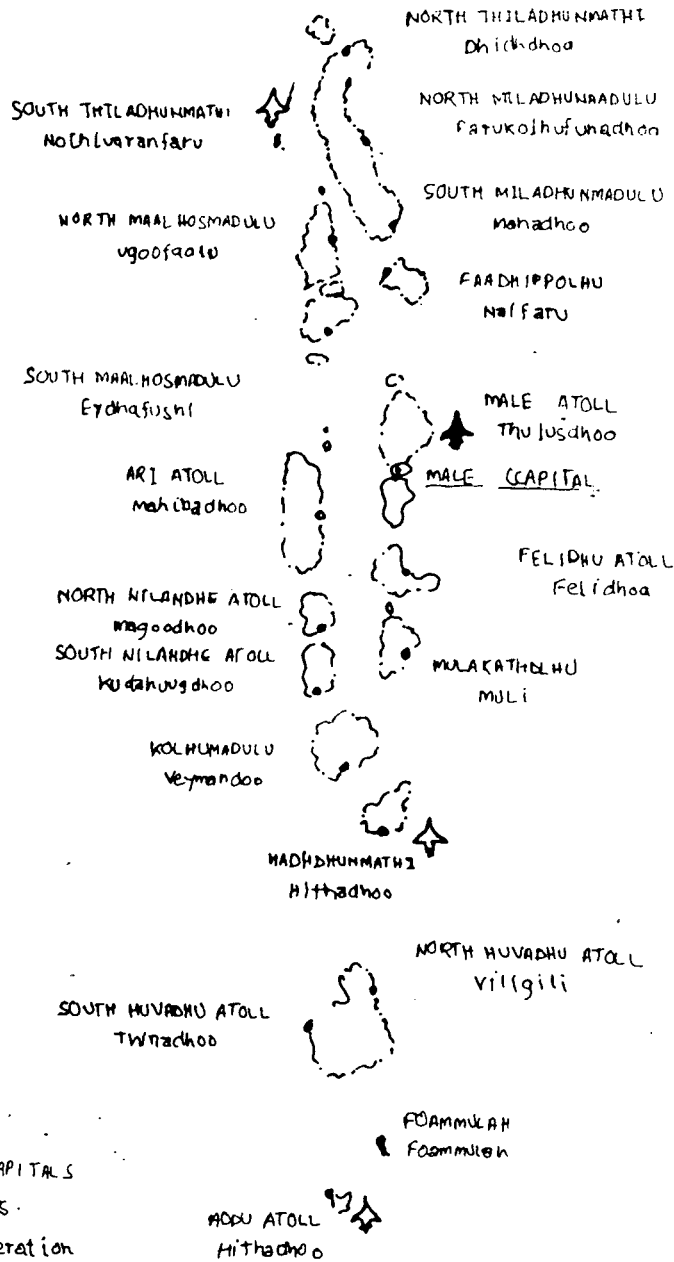 NORTH THILADHUNMATHI
Dhichdhoa
SOUTH THILADHUNMATHI
Nolhivaranfaru
NORTH MILADHUNMADULU
Farukolhufunadhoo
SOUTH MILADHUNMADULU
Manadhoo
NORTH MAALHOSMADULU
ugoofaalu
FAADHIPPOLHU
Naifaru
SOUTH MAALHOSMADULU
Eydhafushi
MALE ATOLL
Thulusdhoo
ARI ATOLL
mahibadhoo
MALE CCAPITAL
FELIDHU ATOLL
Felidhoa
NORTH NILANDHE ATOLL
magoodhoo
SOUTH NILANDHE ATOLL
MULAKATHOLHU
MULI
KOLHUMADULU
Veymandoo
HADHDHUNMATHI
Hithadhoo
NORTH HUVADHU ATOLL
Viligili
SOUTH HUVADHU ATOLL
FOAMMULAH
Foammulah
APITALS
S.
ADDU ATOLL
Hithadhoo
eration